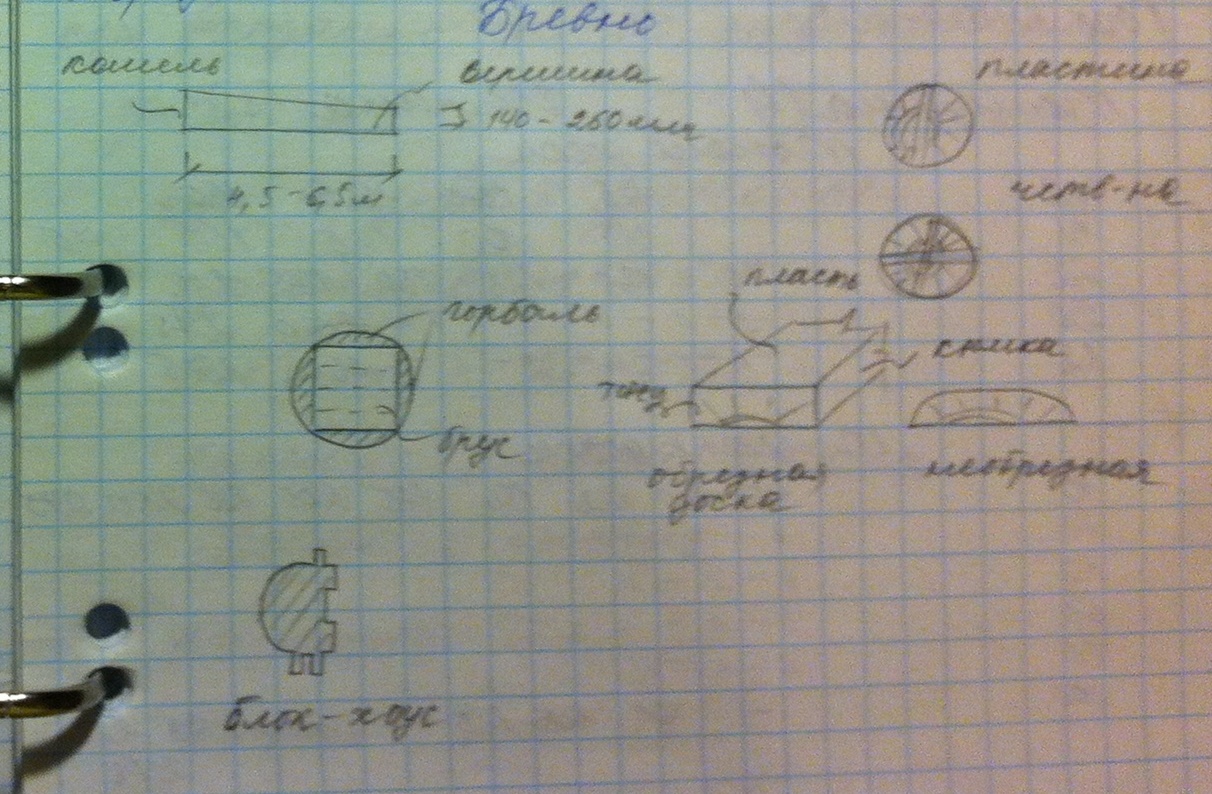 Бревно
комель
вершина
140-260мм
4,5-6,5м
пластина
четв-на
пласть
горбыль
кромка
торец
брус
обрезная
доска
необрезная
блок-хаус